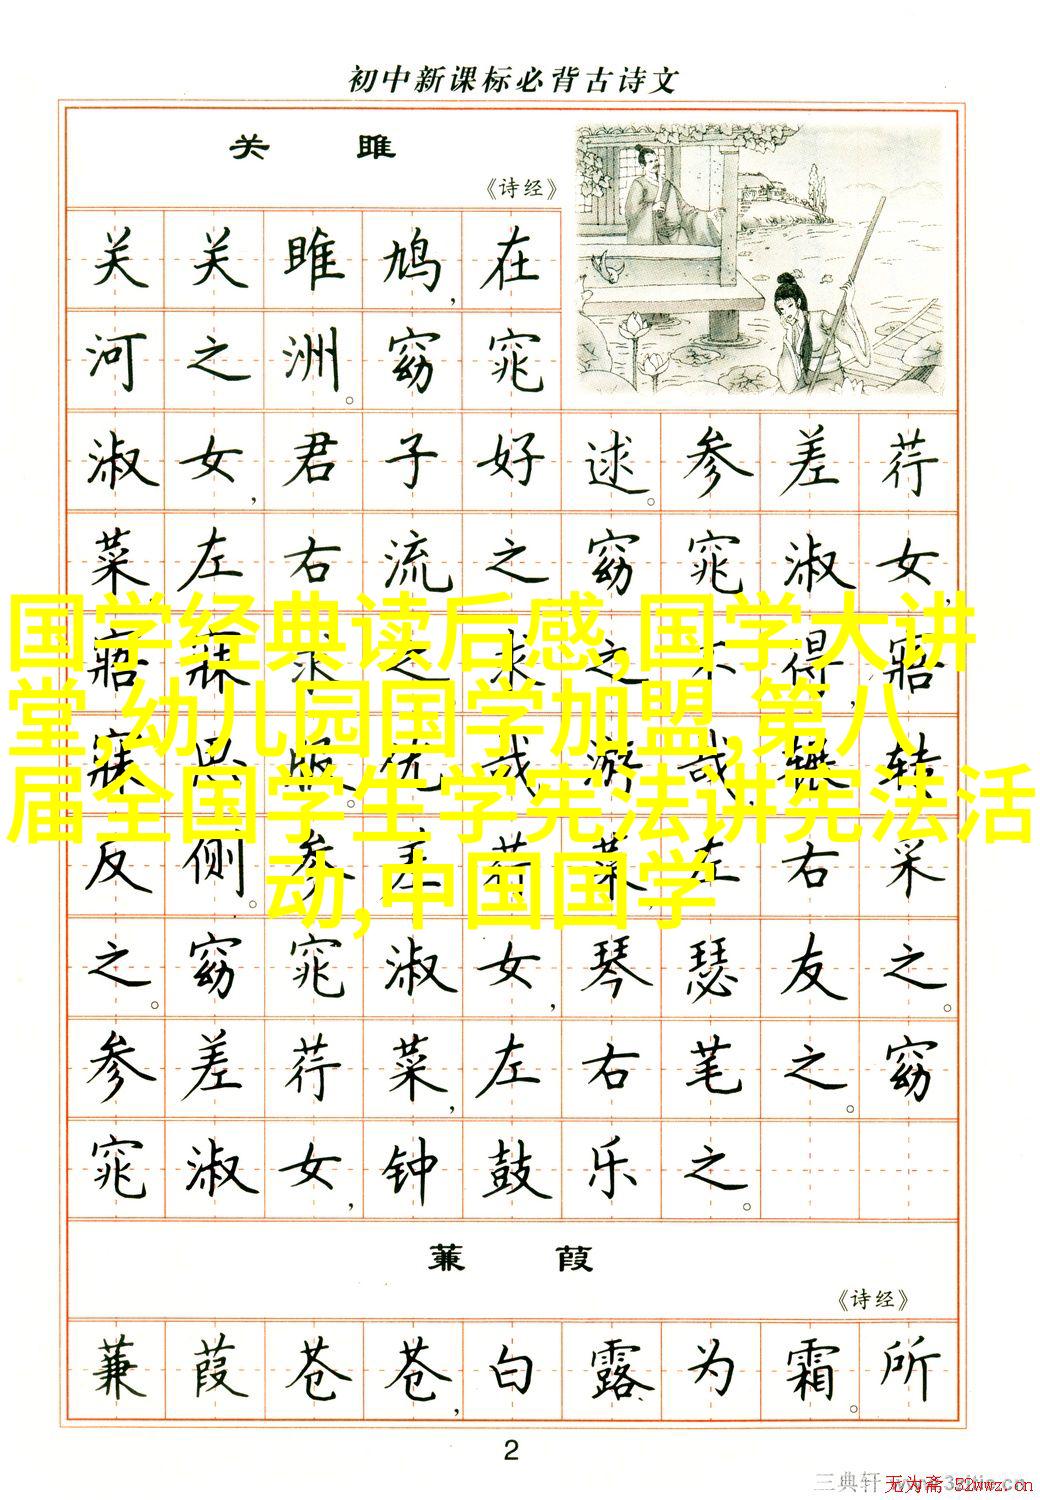 初中新课标必背古诗文
关 雎
《诗经》
关关雎鸠,在
河之洲。窈窕
淑女,君子好逑。参差荇
菜,左右流之。窈窕淑女,
国学经典读后感,国学大讲
寤寐求之。求之不得,寤
堂,幼儿园国学加盟,第八
寐思服。优哉游哉,辗转
届全国学生学宪法讲宪法活
反侧。参差荇菜,左右采
动,中国国学
之。窈窕淑女,琴瑟友之。
参差荇菜,左右芼之。窈
窕淑女,钟鼓乐之。
蒹 葭
《诗经》
蒹葭苍苍,白露为霜。所
2
三典轩
无为斋 52wwz.cn